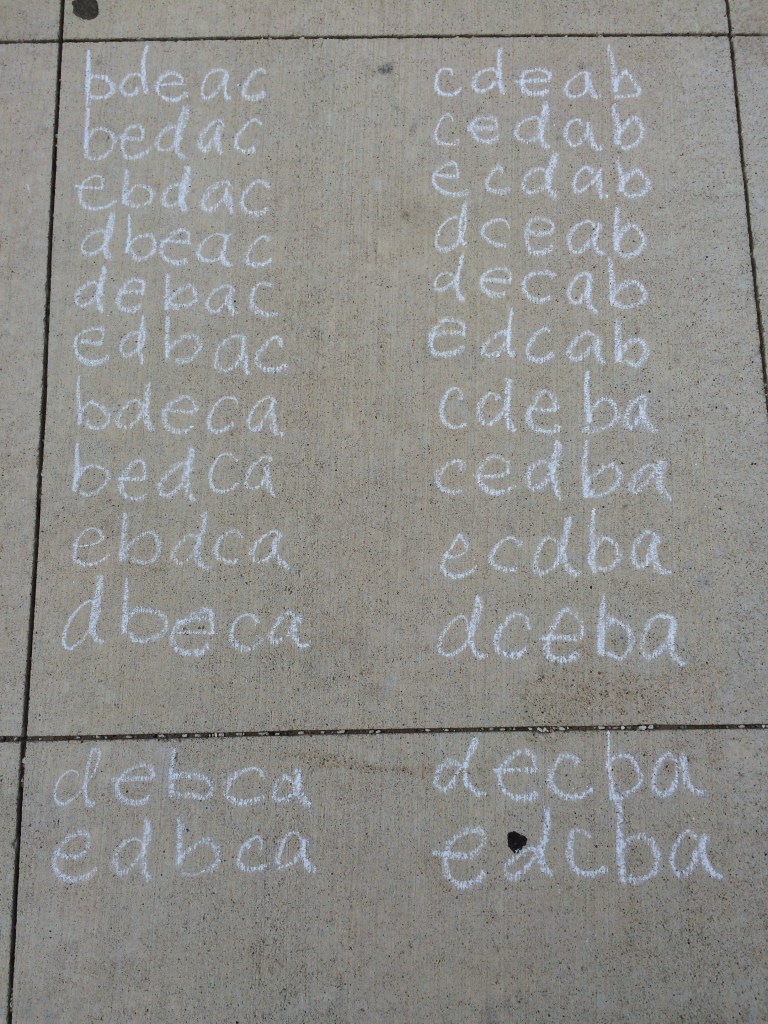 bdeac
bedac
ebdac
dbeac
debac
edbac
bdeca
bedca
ebdca
dbeca
debca
edbca
cdeab
cedab
ecdab
dceab
decab
edcab
cdeba
cedba
ecdba
dceba
decba
edcba